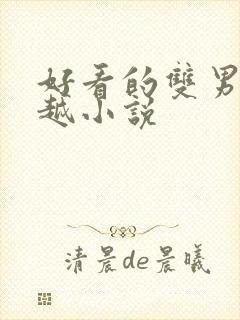 好看的雙男
越小說
清晨de晨曦